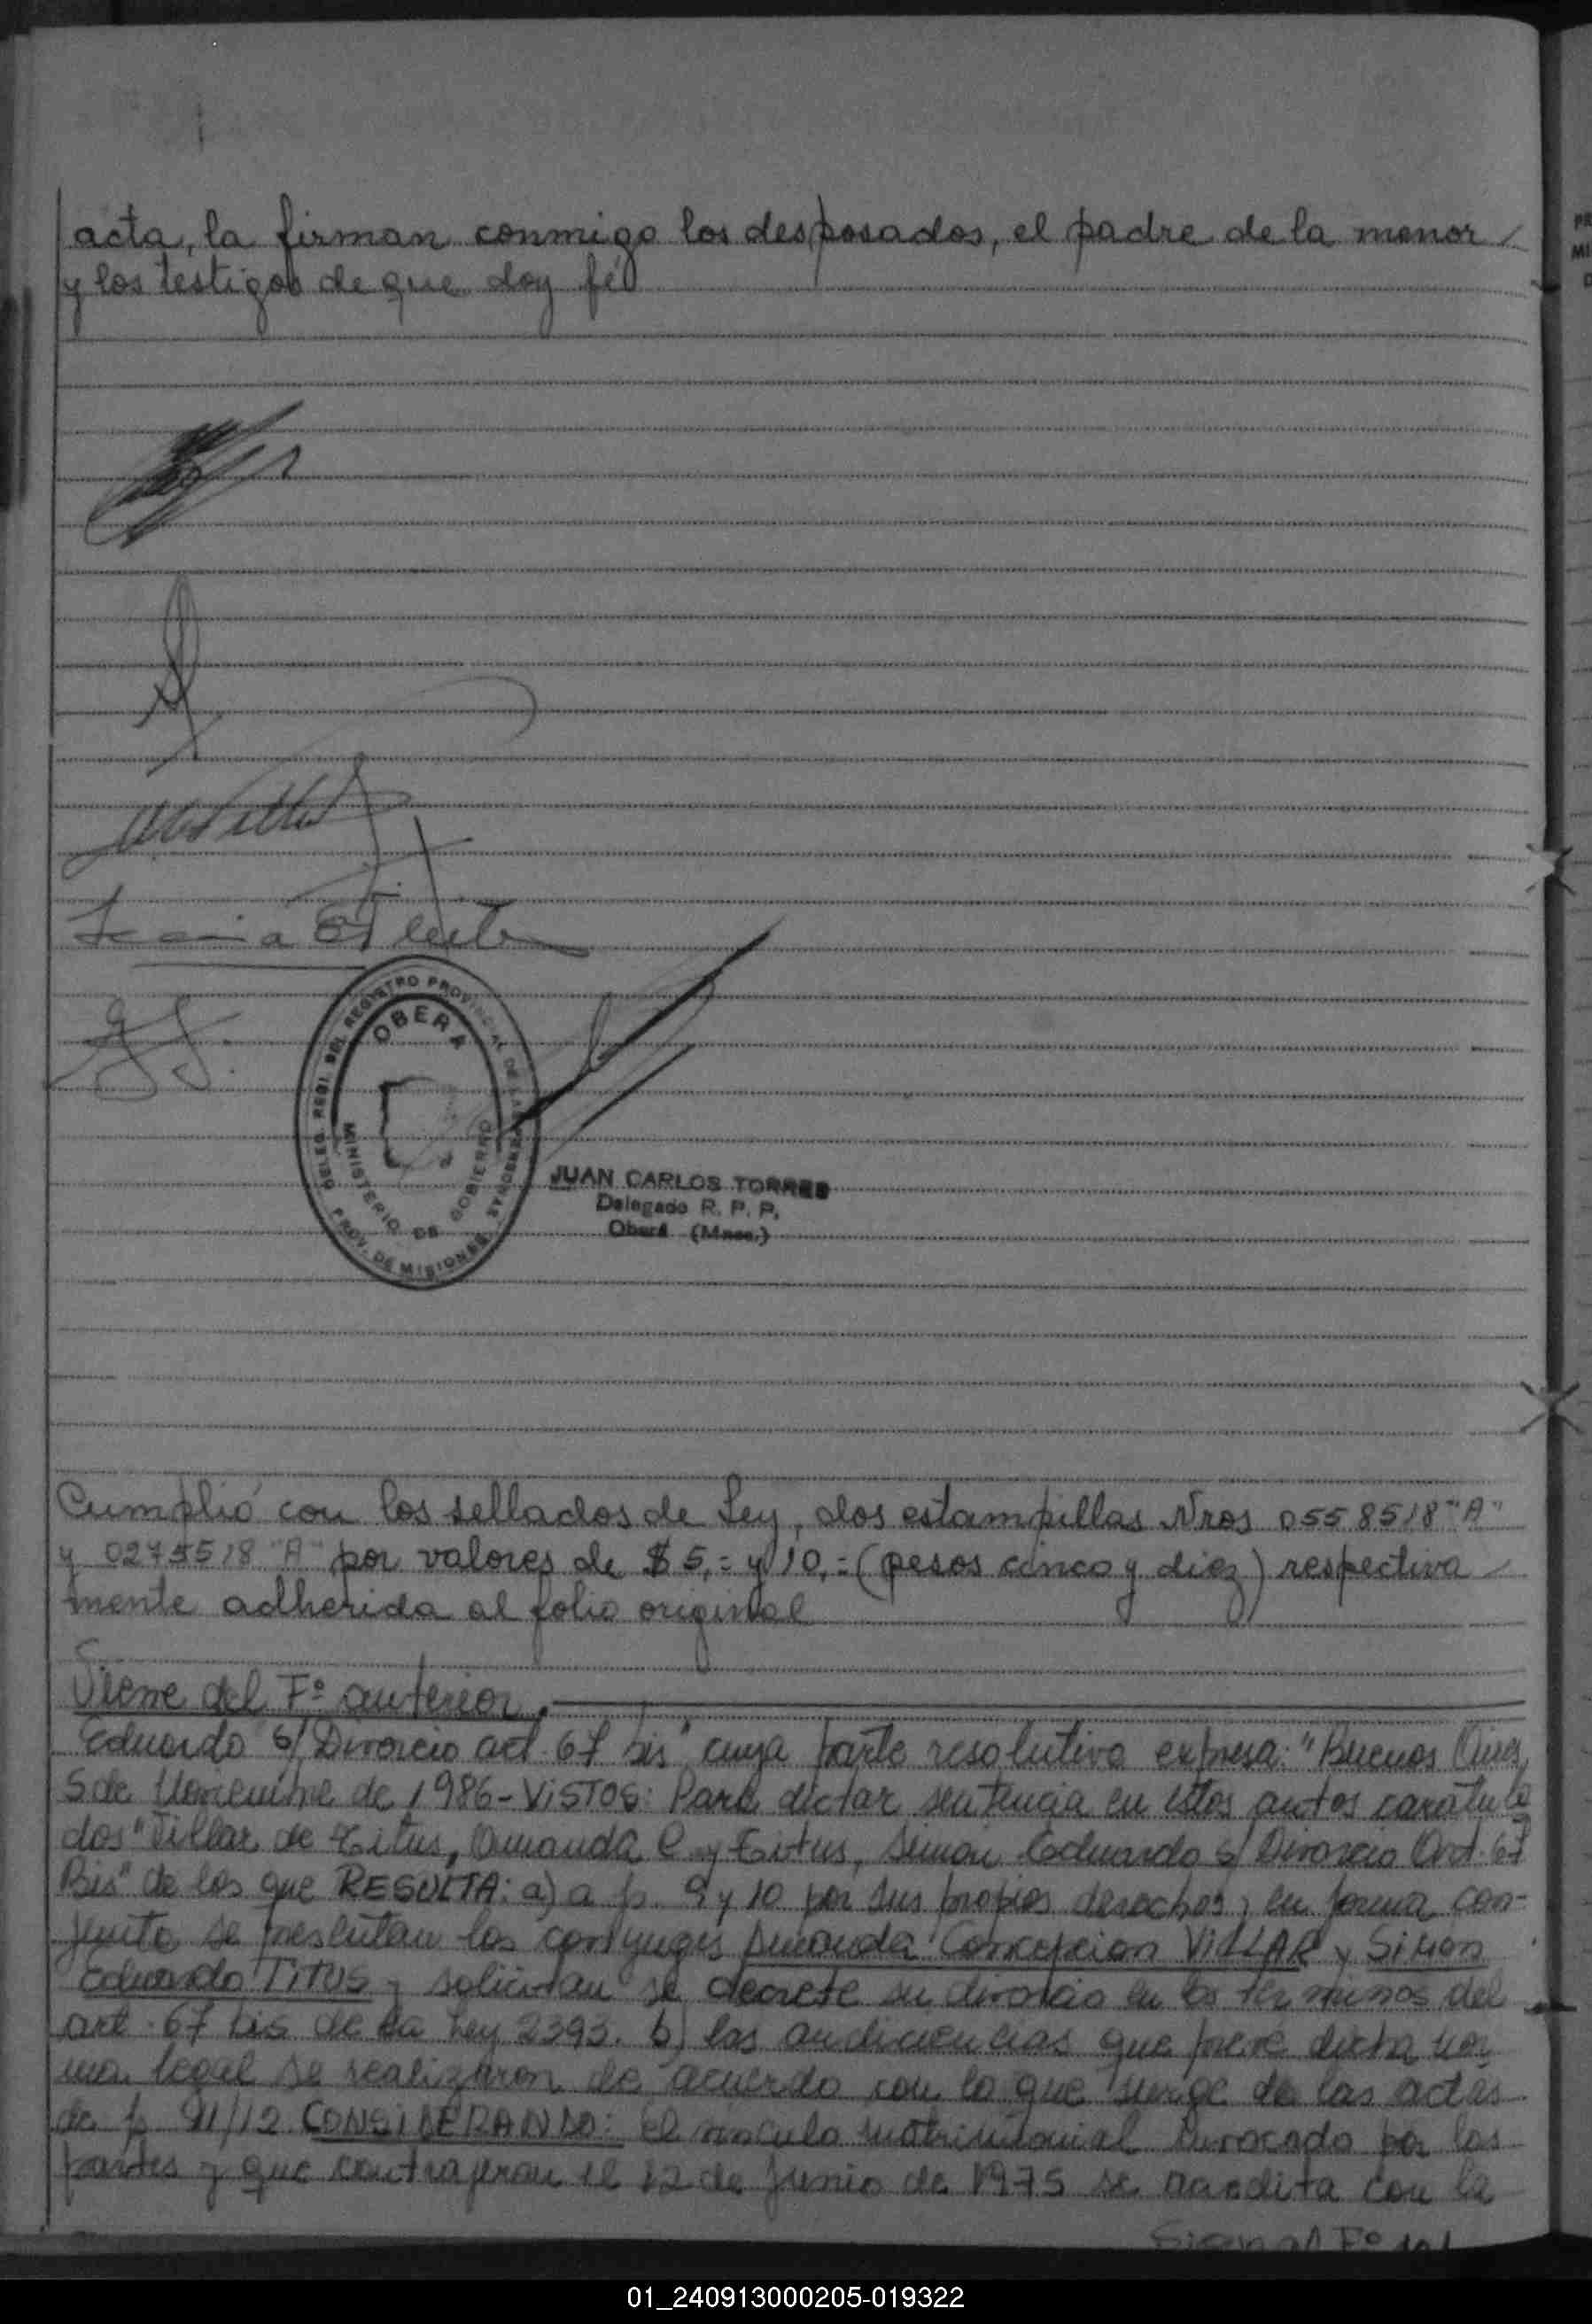 acta, la firman conmigo los desposados, el padre de la menor
y los testigos de que doy fé
DELEG. REGI. DEL REGISTRO PROVINCIAL DE LAS PERSONAS
OBERA
MINISTERIO DE GOBIERNO
PROV. DE MISIONES
JUAN CARLOS TORRES
Delegado R. P. P.
Oberá (Mnes.)
Cumplió con los sellados de Ley, dos estampillas Nros 0558518 "A"
y 0275518 "A" por valores de $ 5,= y 10,= (pesos cinco y diez) respectiva
mente adherida al folio original
Viene del Fº anterior.
Eduardo s/ Divorcio act. 67 bis" cuya parte resolutiva expresa: "Buenos Aires,
5 de Noviembre de 1986 - VISTOS: Para dictar sentencia en estos autos caratula
dos "Villar de Titus, Amanda C. y Titus, Simon Eduardo s/ Divorcio Art. 67
Bis" de los que RESULTA: a) a fs. 9 y 10 por sus propios derechos, en forma con-
junta se presentan los conyuges Amanda Concepcion VILLAR y Simon
Eduardo TITUS y solicitan se decrete su divorcio en los terminos del
art. 67 bis de la Ley 2393. b) las audiciencias que prevé dicha nor
ma legal se realizaron de acuerdo con lo que surge de las actas
de fs. 11/12 CONSIDERANDO: El vinculo matrimonial invocado por las
partes y que contrajeran el 12 de Junio de 1975 se acredita con la
01_240913000205-019322